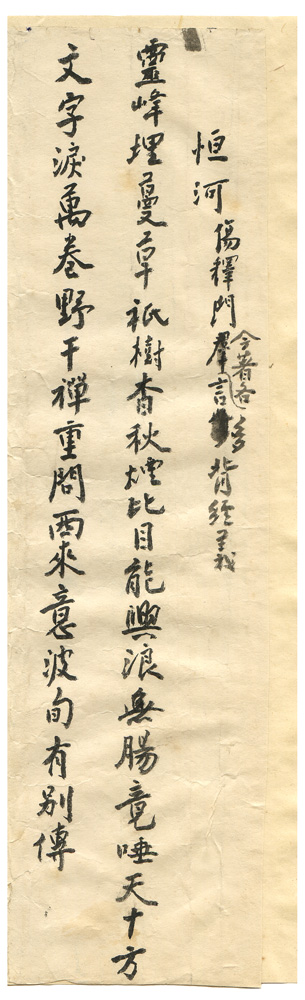 恒河傷釋門羣言多背經義
今著各
靈峰埋蔓草祇樹杳秋煙比目能興浪無腸竟唾天十方
文字淚萬卷野干禪重問西來意波旬有別傳